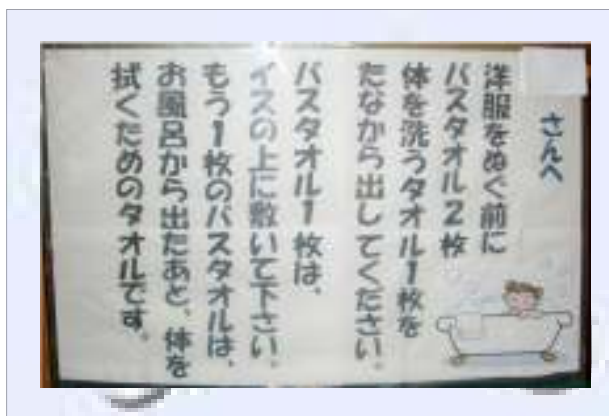 さんへ
洋服をぬぐ前に
バスタオル2枚
体を洗うタオル1枚を
たなから出してください。
バスタオル1枚は、
イスの上に敷いて下さい。
もう1枚のバスタオルは、
お風呂から出たあと、体を
拭くためのタオルです。